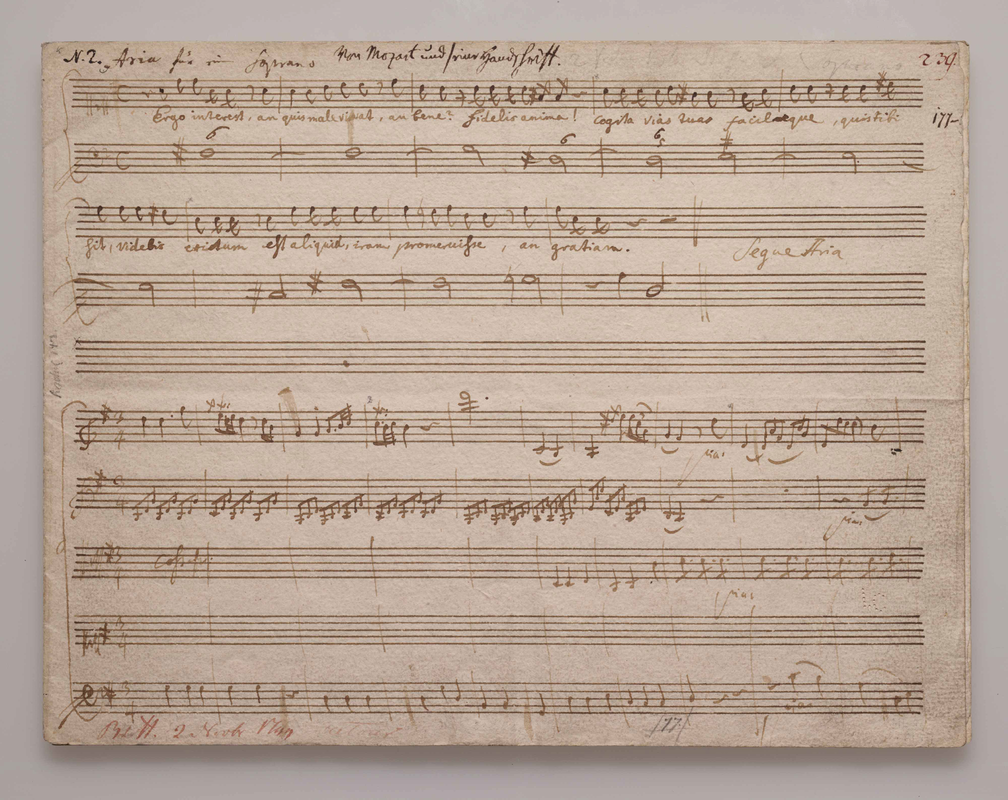 N. 2. Aria für ein Soprano Von Mozart und seine Handschrift. 239.
Ergo interest, an quis male vivat, an bene? fidelis anima! cogita vias tuas facilaeque, quis tibi 177
6 6 6
sit, videbis creditum est aliquid, iram promeruisse, an gratiam.
Segue Aria
pia:
pia:
pia:
177